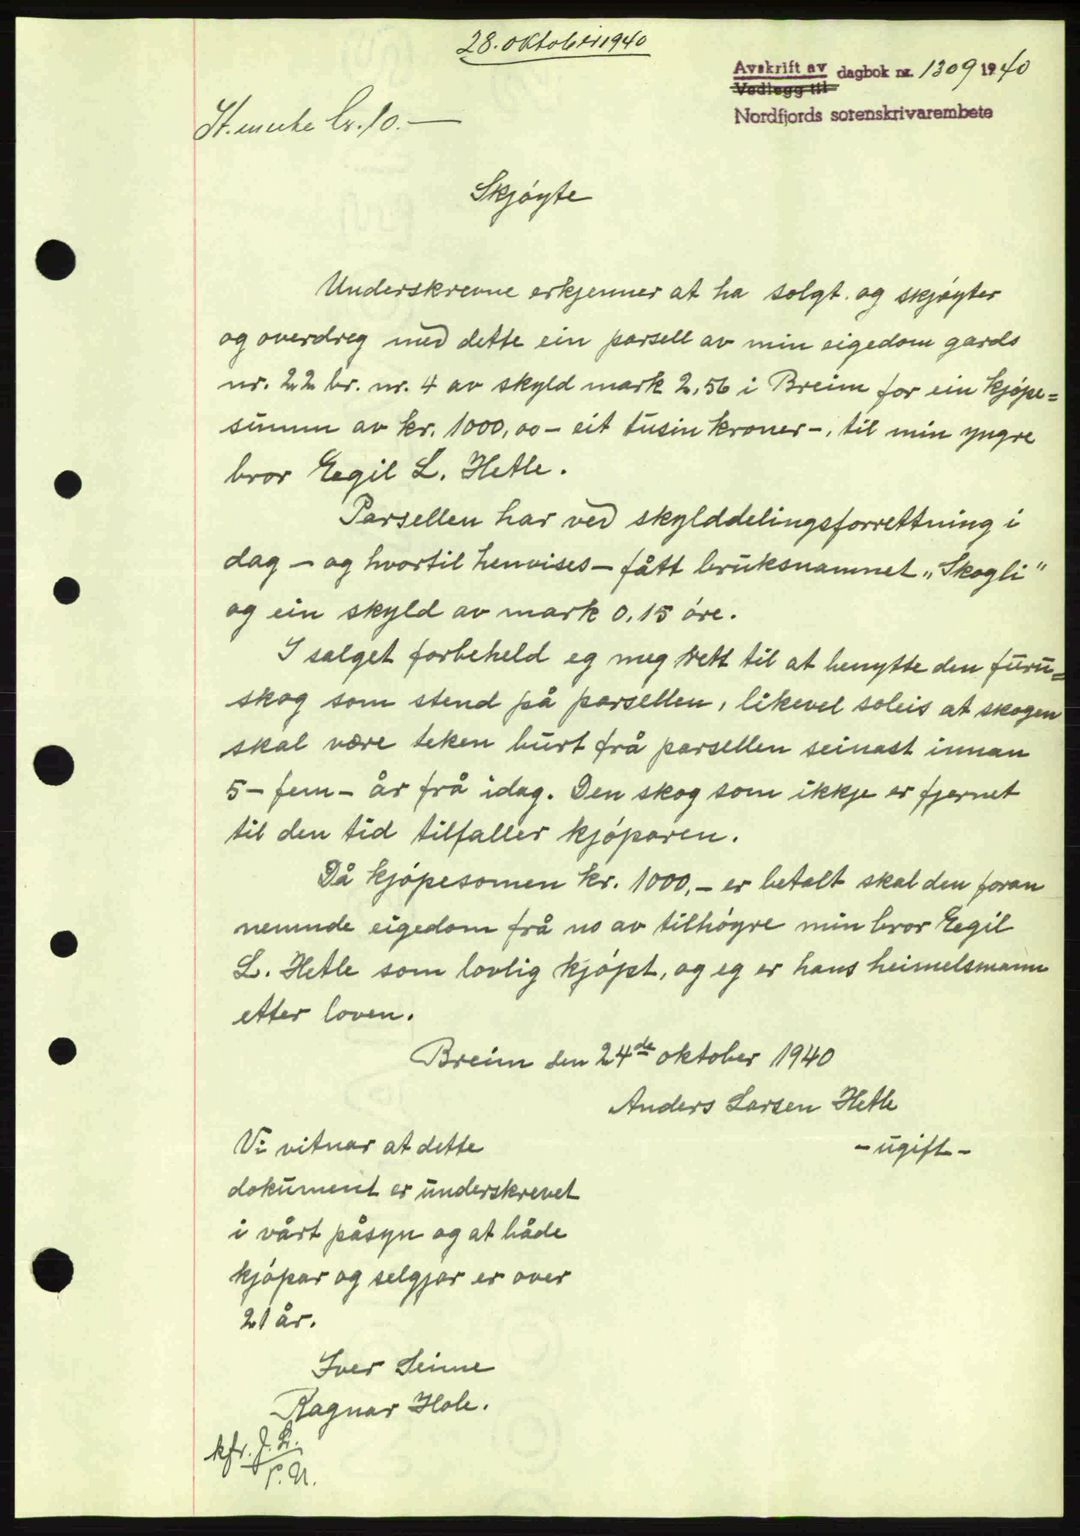 28. oktober 1940
Avskrift av dagbok nr. 1309 1940
Vedlegg til
Nordfjords sorenskrivarembete
St. merke kr. 10.—
Skjøyte
Underskrevne erkjenner at ha solgt og skjøyter
og overdreg med dette ein parsell av min eigedom gards
nr. 22 br. nr. 4 av skyld mark 2,56 i Breim for ein kjøpe=
summ av kr. 1000,00 – eit tusin kroner –, til min yngre
bror Eegil L. Hetle.
Parsellen har ved skylddelingsforrettning i
dag – og hvortil henvises – fått bruksnamnet „Skogli"
og ein skyld av mark 0,15 øre.
I salget forbeheld eg meg rett til at benytte den furu=
skog som stend på parsellen, likevel soleis at skogen
skal være teken burt frå parsellen seinast innan
5 – fem – år frå idag. Den skog som ikkje er fjernet
til den tid tilfaller kjøparen.
Då kjøpesomen kr. 1000,– er betalt skal den foran
nemnde eigedom frå no av tilhøyre min bror Eegil
L. Hetle som lovlig kjøpt, og eg er hans heimelsmann
etter loven.
Breim den 24de oktober 1940
Anders Larsen Hetle
– ugift –
Vi vitnar at dette
dokument er underskrevet
i vårt påsyn og at både
kjøpar og selgjar er over
21 år.
Iver Seime
Ragnar Hole.
kfr. J. L.